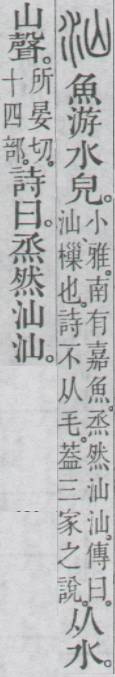 汕魚游水皃。小雅。南有嘉魚。烝然汕汕。傳曰。汕、樔也。詩不从毛。葢三家之說。从水。
山聲。所晏切。十四部。詩曰。烝然汕汕。